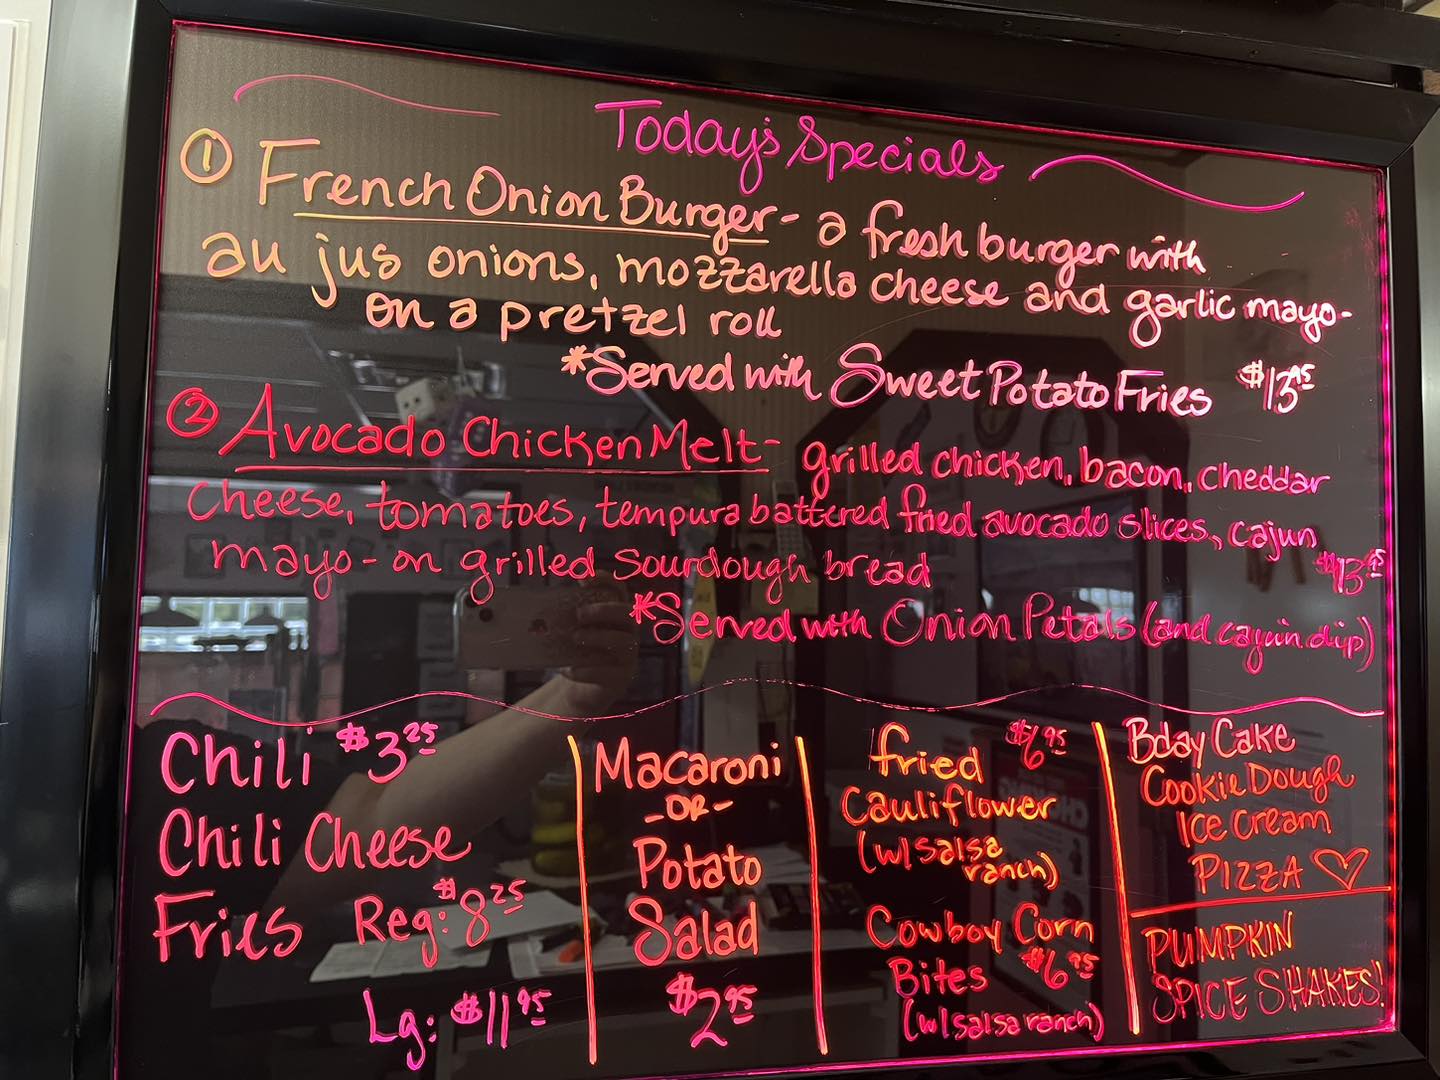 Today's Specials
① French Onion Burger - a fresh burger with
au jus onions, mozzarella cheese and garlic mayo-
on a pretzel roll
*Served with Sweet Potato Fries $13.95
② Avocado Chicken Melt - grilled chicken, bacon, cheddar
cheese, tomatoes, tempura battered fried avocado slices, cajun
mayo - on grilled sourdough bread $13.95
*Served with Onion Petals (and cajun dip)
Chili $3.25
Chili Cheese
Fries Reg: $8.25
Lg: $11.95
Macaroni
-OR-
Potato
Salad
$2.95
fried $6.95
Cauliflower
(w/salsa
ranch)
Cowboy Corn
Bites $6.95
(w/salsa ranch)
Bday Cake
Cookie Dough
Ice Cream
PIZZA ♡
PUMPKIN
SPICE SHAKES!